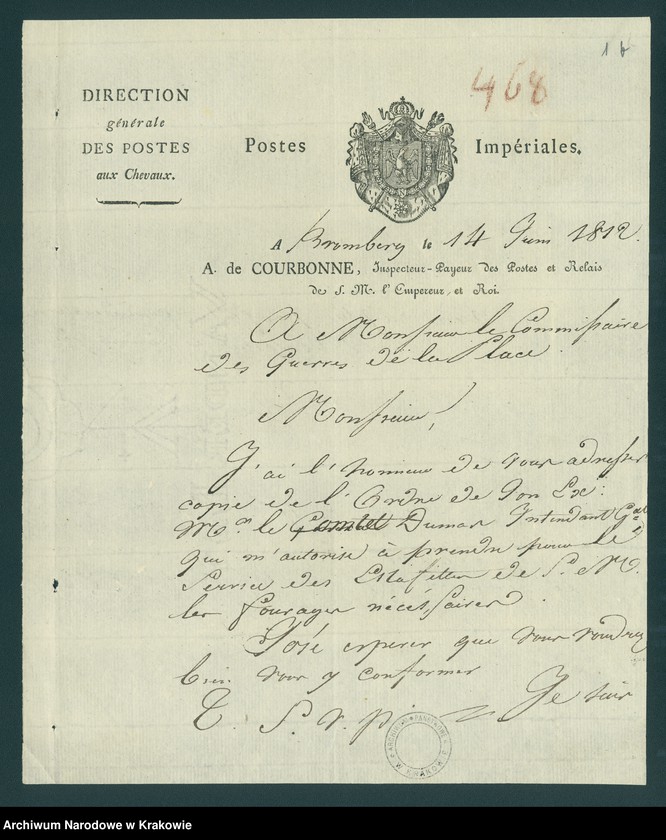 1 b
468
DIRECTION
générale
DES POSTES
aux Chevaux.
Postes Impériales.
A Bromberg le 14 Juin 1812.
A. de COURBONNE, Inspecteur-Payeur des Postes et Relais
de S. M. l'Empereur, et Roi.
A Monsieur le Commissaire
des Guerres de la Place.
Monsieur!
J'ai l'honneur de vous adresser
copie de l'Ordre de Son Ex:
Mr. le Comte Dumas Intendant Gal
qui m'autorise à prendre pour le
Service des Estafettes de S. M.
les fourages nécéssaires.
J'ose esperer que vous voudrez
bien vous y conformer
Je suis
T. S. v. p.
ARCHIWUM PAŃSTWOWE
W KRAKOWIE
Archiwum Narodowe w Krakowie